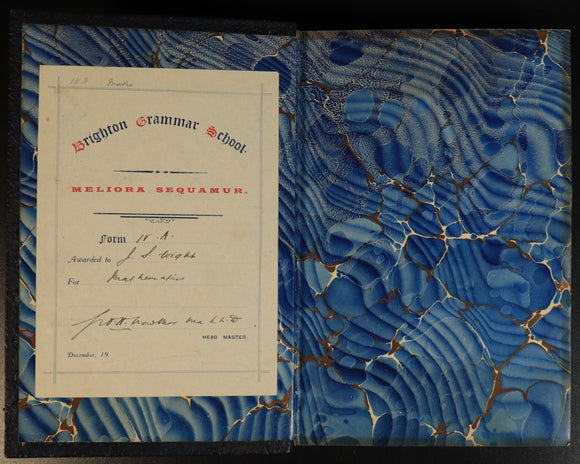 IV A Maths
Brighton Grammar School.
MELIORA SEQUAMUR.
Form IV. A.
Awarded to J. S. Wight
For Mathematics
M A L L. D
HEAD MASTER.
December, 19